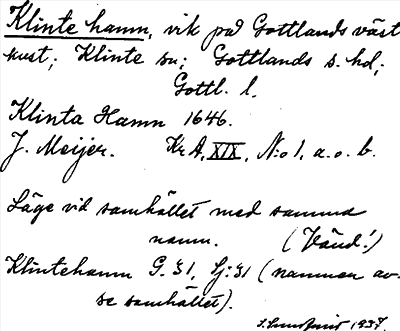 Klinte hamn, vik på Gottlands väst
kust; Klinte sn; Gottlands s. hd;
Gottl. l.
Klinta Hamn 1646.
J. Meijer. Kr A, XIX, N:o 1, a. o. b.
Läge vid samhället med samma
namn. (Vänd!)
Klintehamn G. 31, Sj: 31 (namnen av-
se samhället).
1937.